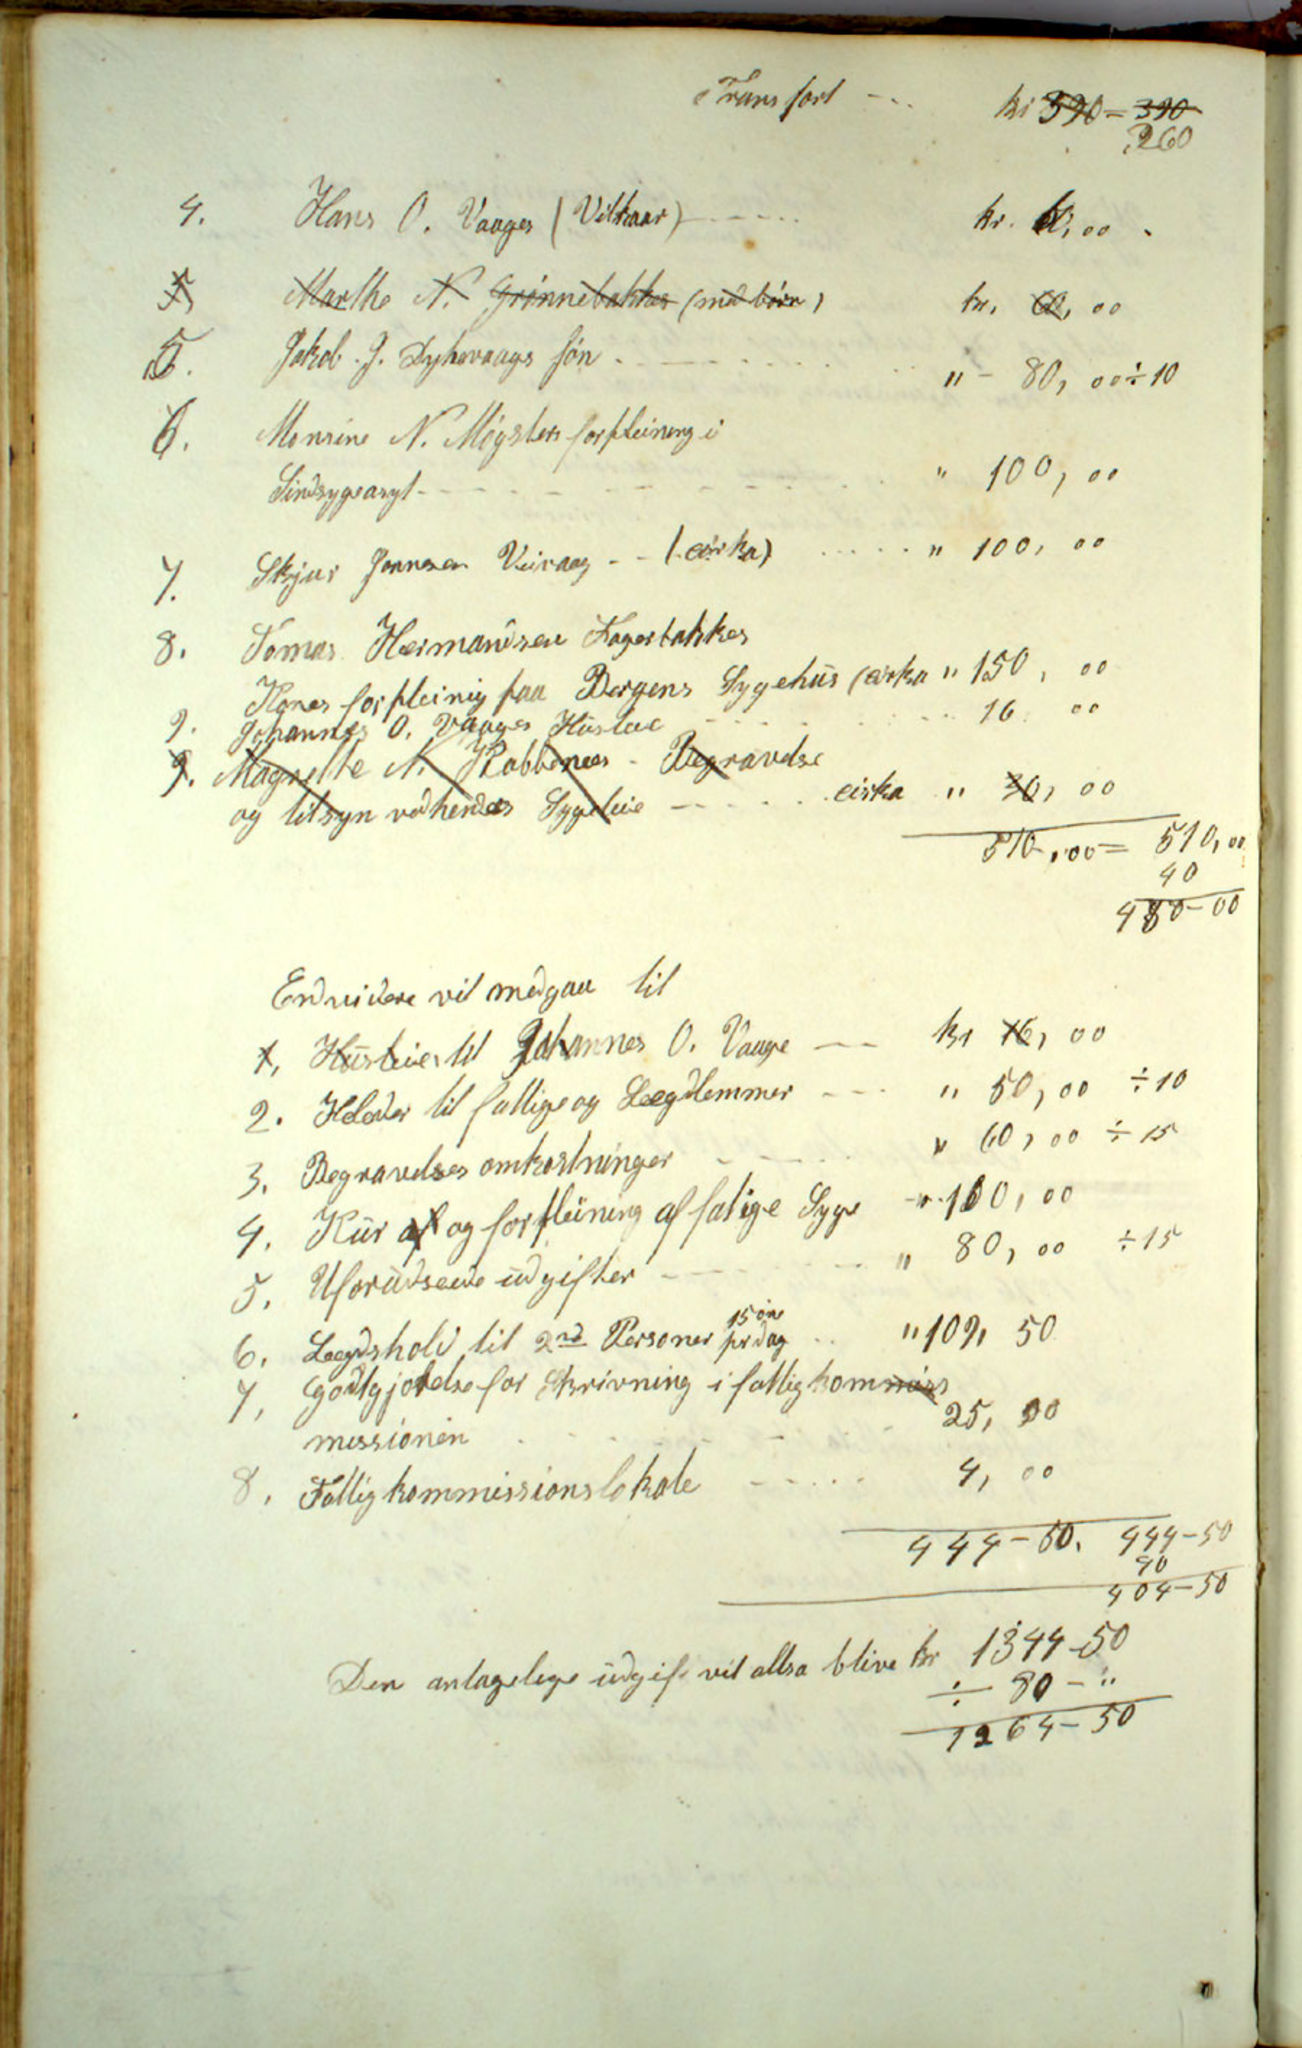 Transport --- kr 390 = 390
260
4. Hans O. Vaages (Vilkaar) ----- kr. ,00 .
5 Marthe N. Grönnebakkes (med börn) kr. 60,00
5. Jakob J. Dyhrvaags sön . ------- " - 80,00 ÷ 10
6. Monsine N. Mögsters forpleining i
Sindsygeasyl ------- " 100,00
7. Skjur Jonnesen Veivaag -- (cirka) ..... " 100,00
8. Tomas Hermandsen Fagerbakkes
Kones forpleinig paa Bergens Sygehüs (cirka " 150, 00
9. Johannes O. Vaages Hüsleie ------- 16. 00
9. Magrethe N. Rabbenes - Begravdse
og tilsyn ved hendes Sygeleie ------ cirka " 30,00
510,00 = 510,00
40
480-00
Endvidere vil medgaa til
1, Hüsleie til Johannes O. Vaage --- kr 16,00
2. Klæder til fattige og Lægdlemmer ---- " 50,00 ÷ 10
3. Begravelses omkostninger ------ " 60,00 ÷ 15
4. Kür af og forpleining af fatige Syge -"- 100,00
5. Uforüdseede üdgifter ------- " 80,00 ÷ 15
6. Lægdshold til 2nd Personer 15 öre pr dag .. " 109, 50
7, Godtgjörelse for Skrivning i fattigkommiss
missionen . - . - . - 25, 00
8. Fattigkommissionslokale ------ 4, 00
444-50. 444-50
40
404-50
Den antagelige üdgift vil altsa blive kr 1344-50
÷ 80 - "
1264-50